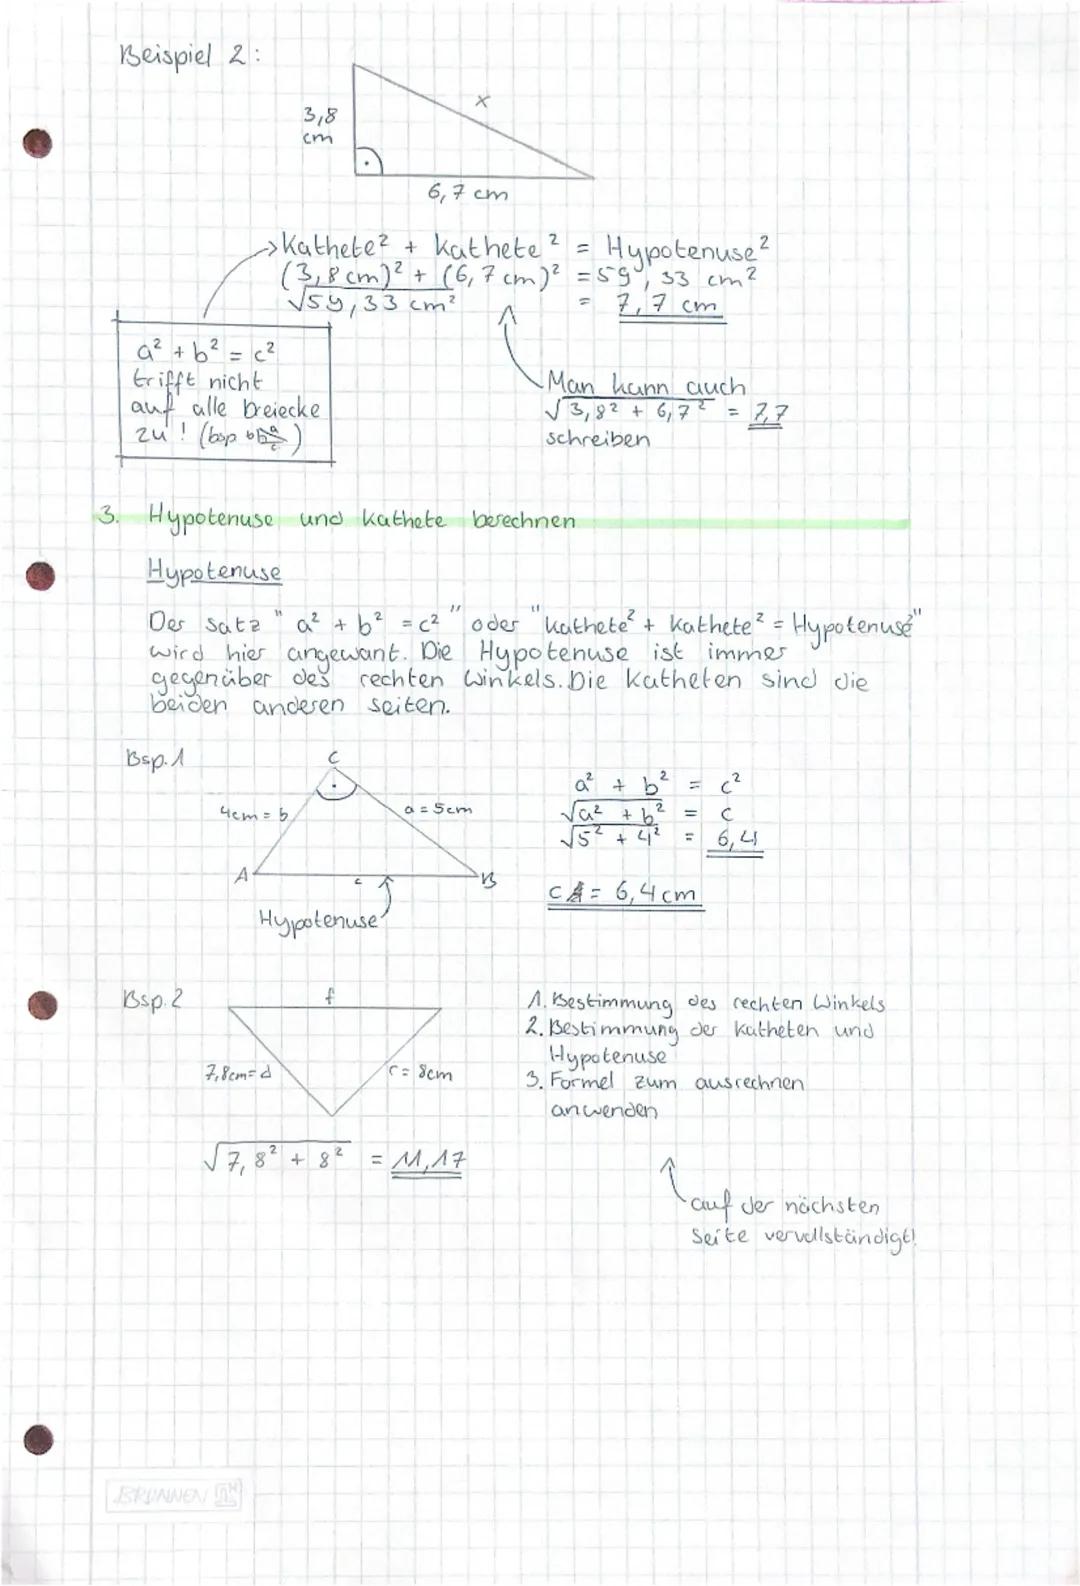 Beispiel 2:
3,8
cm
x
6,7 cm
→ Kathete² + Kathete² = Hypotenuse²
(3,8 cm)² + (6,7 cm)² = 59,33 cm²
√59,33 cm² = 7,7 cm
a² + b² = c²
trifft nicht
auf alle Dreiecke
zu! (bsp b a c)
Man kann auch
√3,8² + 6,7² = 7,7
schreiben
3. Hypotenuse und Kathete berechnen
Hypotenuse
Der Satz "a² + b² = c²" oder "Kathete² + Kathete² = Hypotenuse²"
wird hier angewant. Die Hypotenuse ist immer
gegenüber des rechten Winkels. Die Katheten sind die
beiden anderen Seiten.
Bsp. 1
C
4cm = b
a = 5cm
A
c
B
Hypotenuse
a² + b² = c²
√a² + b² = c
√5² + 4² = 6,4
c = 6,4 cm
Bsp. 2
f
7,8cm = d
r = 8cm
√7,8² + 8² = 11,17
1. Bestimmung des rechten Winkels
2. Bestimmung der Katheten und
Hypotenuse
3. Formel zum ausrechnen
anwenden
auf der nächsten
Seite vervollständigt!
BRUNNEN